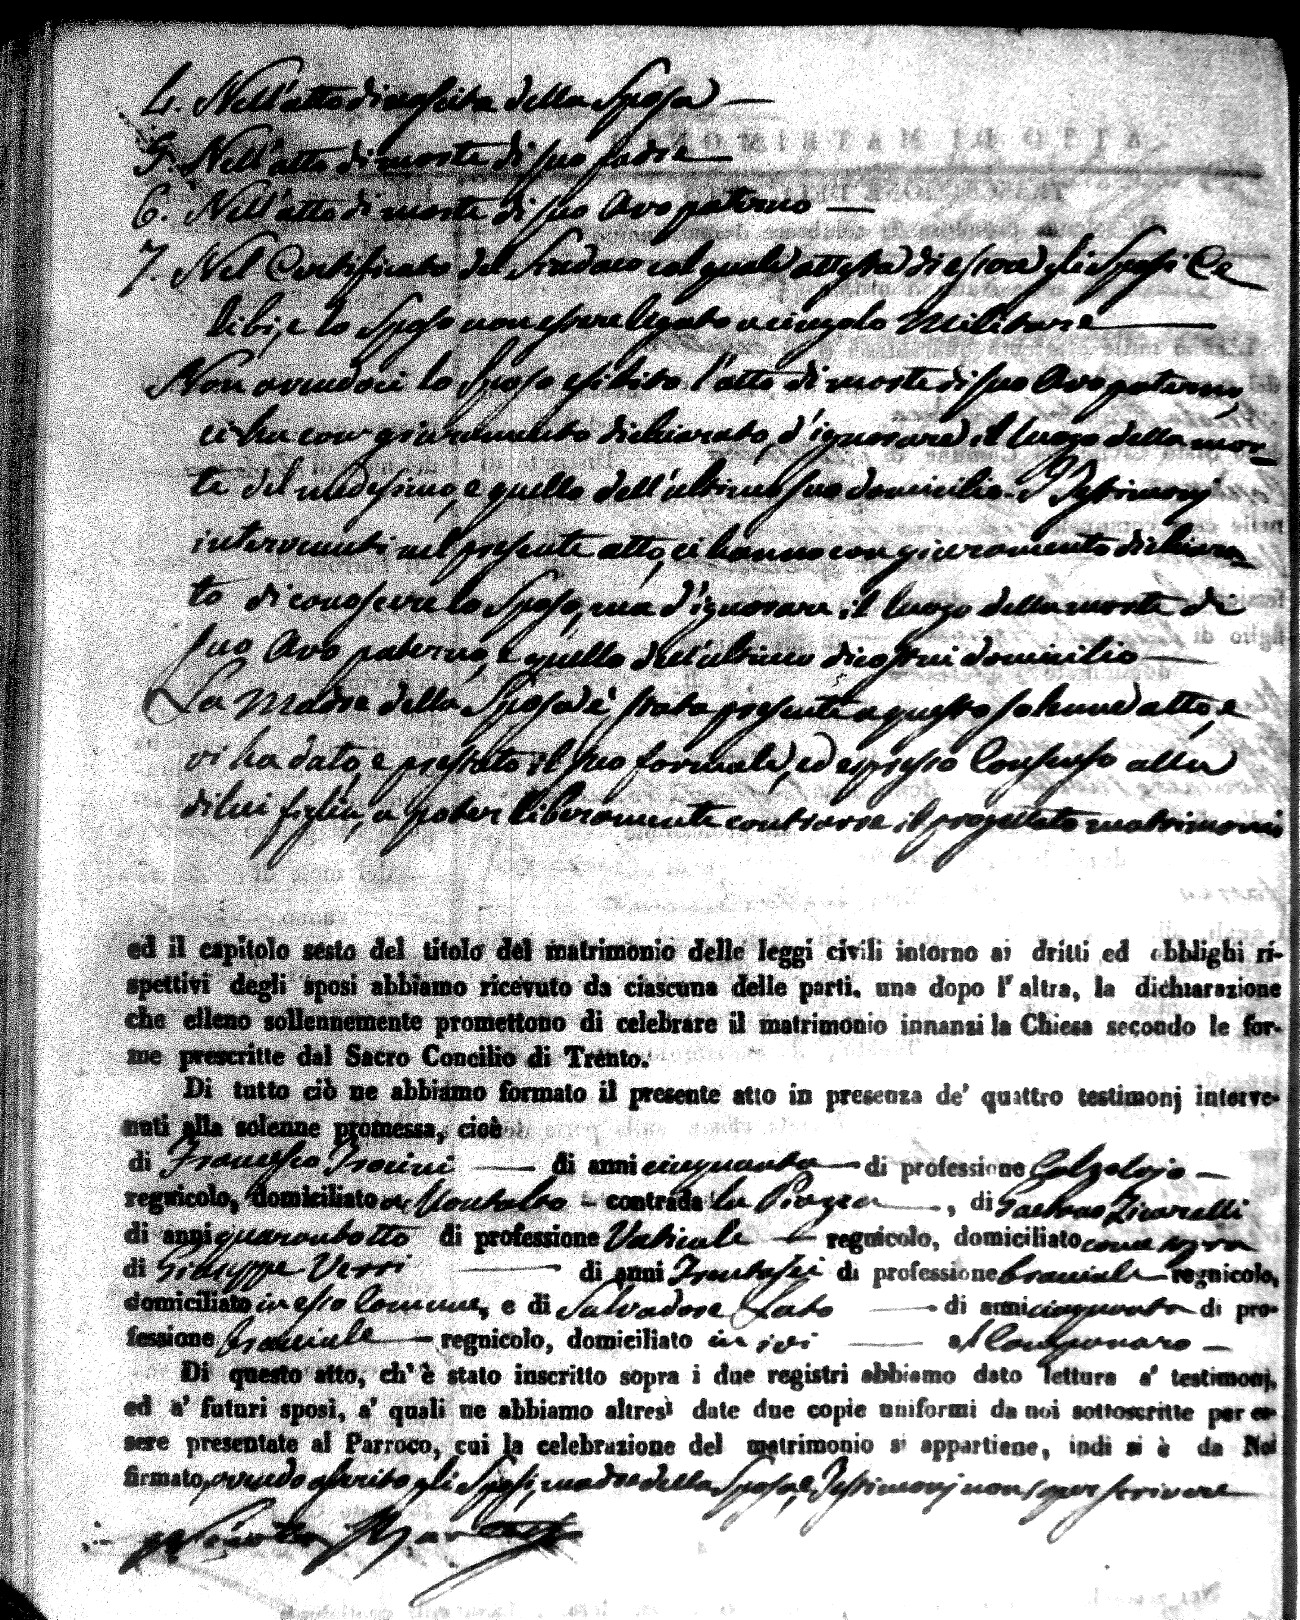 4. Nell'atto di nascita della Sposa —
5. Nell'atto di morte di suo padre —
6. Nell'atto di morte di suo Avo paterno —
7. Nel Certificato del Sindaco col quale attesta di essere gli Sposi Ce
libi, e lo Sposo non essere legato a cingolo Militare —
Non avendoci lo Sposo esibito l'atto di morte di suo Avo paterno,
ci ha con giuramento dichiarato, d'ignorare il luogo della mor-
te del medesimo, e quello dell'ultimo suo domicilio. I Testimonj
intervenuti nel presente atto, ci hanno con giuramento dichiara-
to di conoscere lo Sposo, ma d'ignorare il luogo della morte di
suo Avo paterno, e quello dell'ultimo di costui domicilio —
La Madre della Sposa è stata presente a questo solenne atto, e
vi ha dato, e prestato il suo formale, ed espresso Consenso alla
di lui figlia, a poter liberamente contrarre il progettato matrimonio
ed il capitolo sesto del titolo del matrimonio delle leggi civili intorno ai dritti ed obblighi ri-
spettivi degli sposi abbiamo ricevuto da ciascuna delle parti, una dopo l'altra, la dichiarazione
che elleno sollennemente promettono di celebrare il matrimonio innanzi la Chiesa secondo le for-
me prescritte dal Sacro Concilio di Trento.
Di tutto ciò ne abbiamo formato il presente atto in presenza de' quattro testimonj interve-
nuti alla solenne promessa, cioè
di Francesco — di anni cinquanta — di professione Calzolajo —
regnicolo, domiciliato in Montalto — contrada la Piazza —, di Gaetano Zicarelli
di anni quarantotto di professione Vaticale — regnicolo, domiciliato come sopra
di Giuseppe Verri — di anni Trentasei di professione bracciale — regnicolo,
domiciliato in esso Comune, e di Salvadore Lato — di anni cinquanta di pro-
fessione bracciale — regnicolo, domiciliato in ivi — al
Di questo atto, ch' è stato inscritto sopra i due registri abbiamo dato lettura a' testimonj,
ed a' futuri sposi, a' quali ne abbiamo altresì date due copie uniformi da noi sottoscritte per es-
sere presentate al Parroco, cui la celebrazione del matrimonio si appartiene, indi si è da Noi
firmato, avendo asserito gli Sposi, madre della Sposa, e Testimonj non saper scrivere